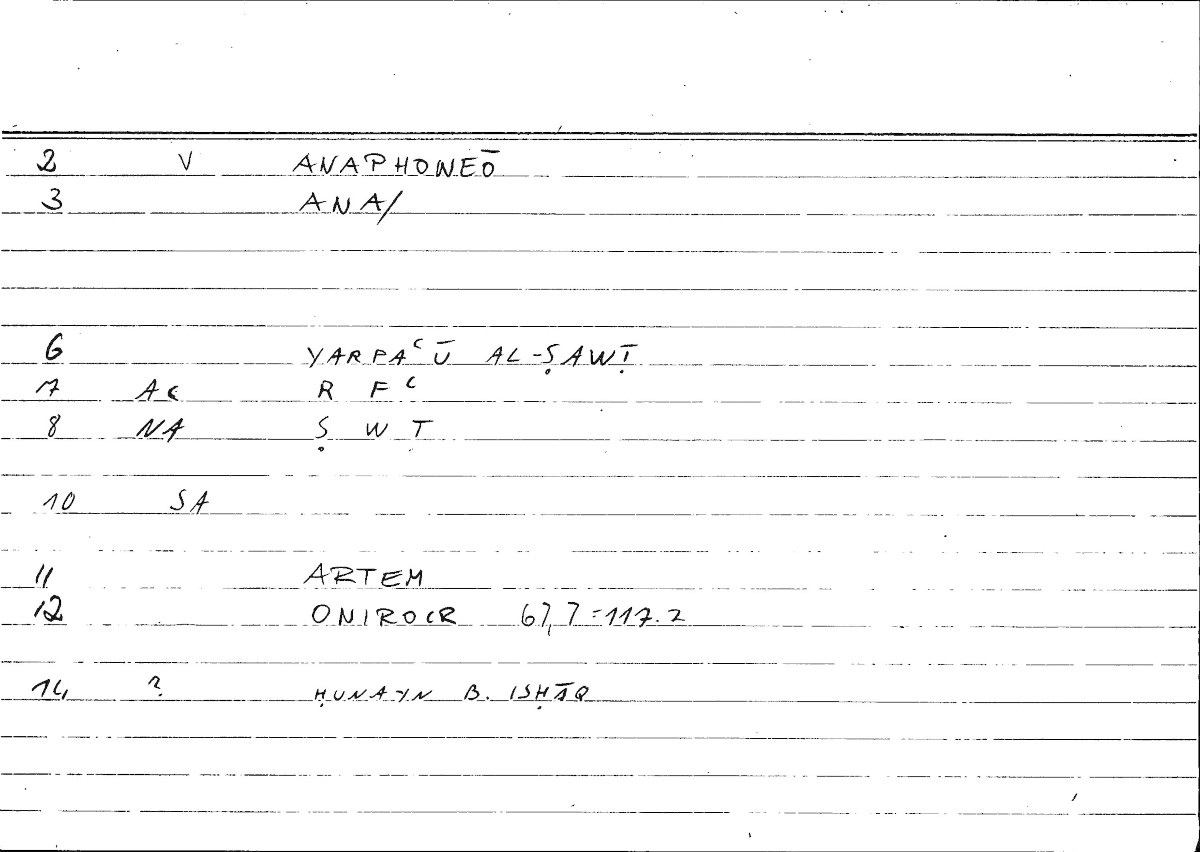 2 V ANAPHONEŌ
3 ANA/
6 YARPAʿŪ AL-ṢAWṬ
7 AC R F ʿ
8 NA Ṣ W T
10 SA
11 ARTEM
12 ONIROCR 67,7=117.2
14 ? ḤUNAYN B. ISḤĀQ